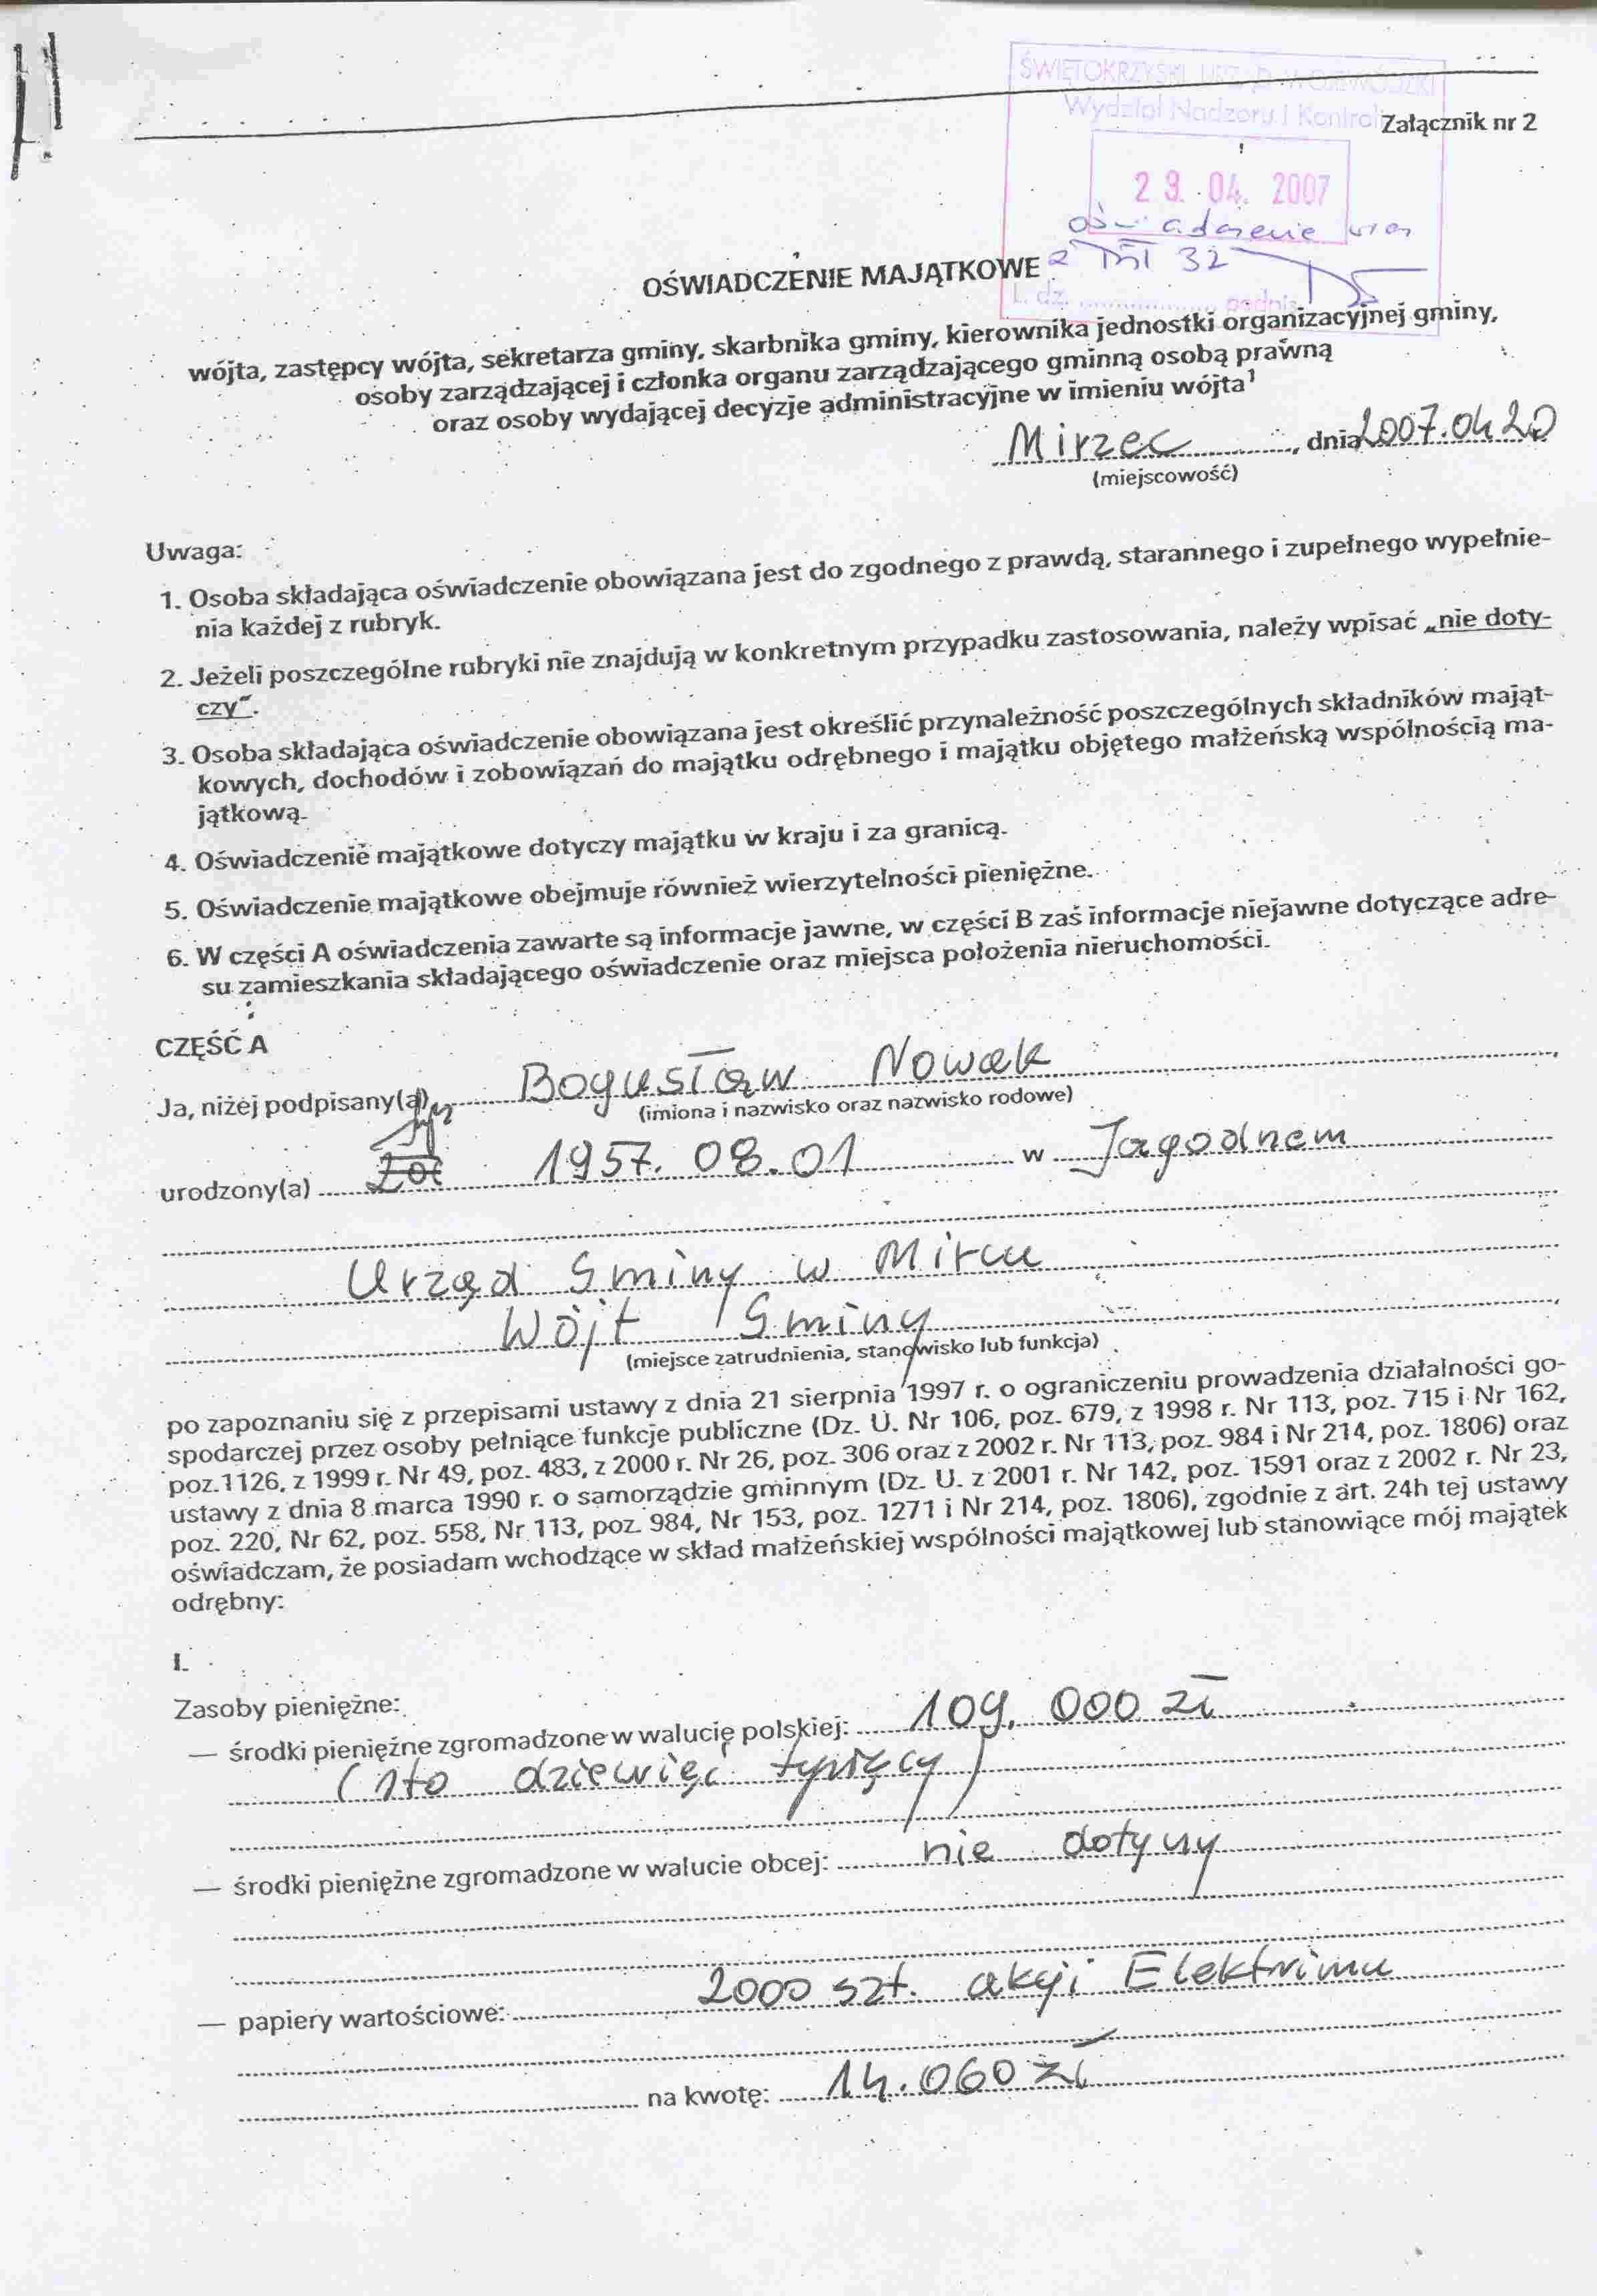 ŚWIĘTOKRZYSKI URZĄD WOJEWÓDZKI
Wydział Nadzoru i Kontroli
Załącznik nr 2
2 3. 04. 2007
oświadczenie wraz
z PIT 32
L. dz. .................... podpis
OŚWIADCZENIE MAJĄTKOWE
wójta, zastępcy wójta, sekretarza gminy, skarbnika gminy, kierownika jednostki organizacyjnej gminy,
osoby zarządzającej i członka organu zarządzającego gminną osobą prawną
oraz osoby wydającej decyzje administracyjne w imieniu wójta¹
Mirzec, dnia 2007.04.20
(miejscowość)
Uwaga:
1. Osoba składająca oświadczenie obowiązana jest do zgodnego z prawdą, starannego i zupełnego wypełnie-
nia każdej z rubryk.
2. Jeżeli poszczególne rubryki nie znajdują w konkretnym przypadku zastosowania, należy wpisać „nie doty-
czy".
3. Osoba składająca oświadczenie obowiązana jest określić przynależność poszczególnych składników mająt-
kowych, dochodów i zobowiązań do majątku odrębnego i majątku objętego małżeńską wspólnością ma-
jątkową.
4. Oświadczenie majątkowe dotyczy majątku w kraju i za granicą.
5. Oświadczenie majątkowe obejmuje również wierzytelności pieniężne.
6. W części A oświadczenia zawarte są informacje jawne, w części B zaś informacje niejawne dotyczące adre-
su zamieszkania składającego oświadczenie oraz miejsca położenia nieruchomości.
CZĘŚĆ A
Ja, niżej podpisany(a), Bogusław Nowak
(imiona i nazwisko oraz nazwisko rodowe)
urodzony(a) 1957. 08. 01 w Jagodnem
Urząd Gminy w Mircu
Wójt Gminy
(miejsce zatrudnienia, stanowisko lub funkcja)
po zapoznaniu się z przepisami ustawy z dnia 21 sierpnia 1997 r. o ograniczeniu prowadzenia działalności go-
spodarczej przez osoby pełniące funkcje publiczne (Dz. U. Nr 106, poz. 679, z 1998 r. Nr 113, poz. 715 i Nr 162,
poz.1126, z 1999 r. Nr 49, poz. 483, z 2000 r. Nr 26, poz. 306 oraz z 2002 r. Nr 113, poz. 984 i Nr 214, poz. 1806) oraz
ustawy z dnia 8 marca 1990 r. o samorządzie gminnym (Dz. U. z 2001 r. Nr 142, poz. 1591 oraz z 2002 r. Nr 23,
poz. 220, Nr 62, poz. 558, Nr 113, poz. 984, Nr 153, poz. 1271 i Nr 214, poz. 1806), zgodnie z art. 24h tej ustawy
oświadczam, że posiadam wchodzące w skład małżeńskiej wspólności majątkowej lub stanowiące mój majątek
odrębny:
I.
Zasoby pieniężne:
— środki pieniężne zgromadzone w walucie polskiej: 109. 000 zł
(sto dziewięć tysięcy)
— środki pieniężne zgromadzone w walucie obcej: nie dotyczy
— papiery wartościowe: 2000 szt. akcji Elektrimu
na kwotę: 14.060 zł